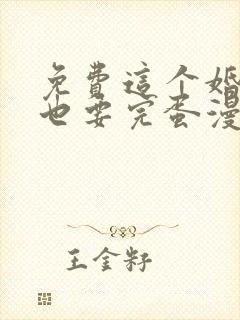 免费這个婚
也要完蛋漫
王金籽